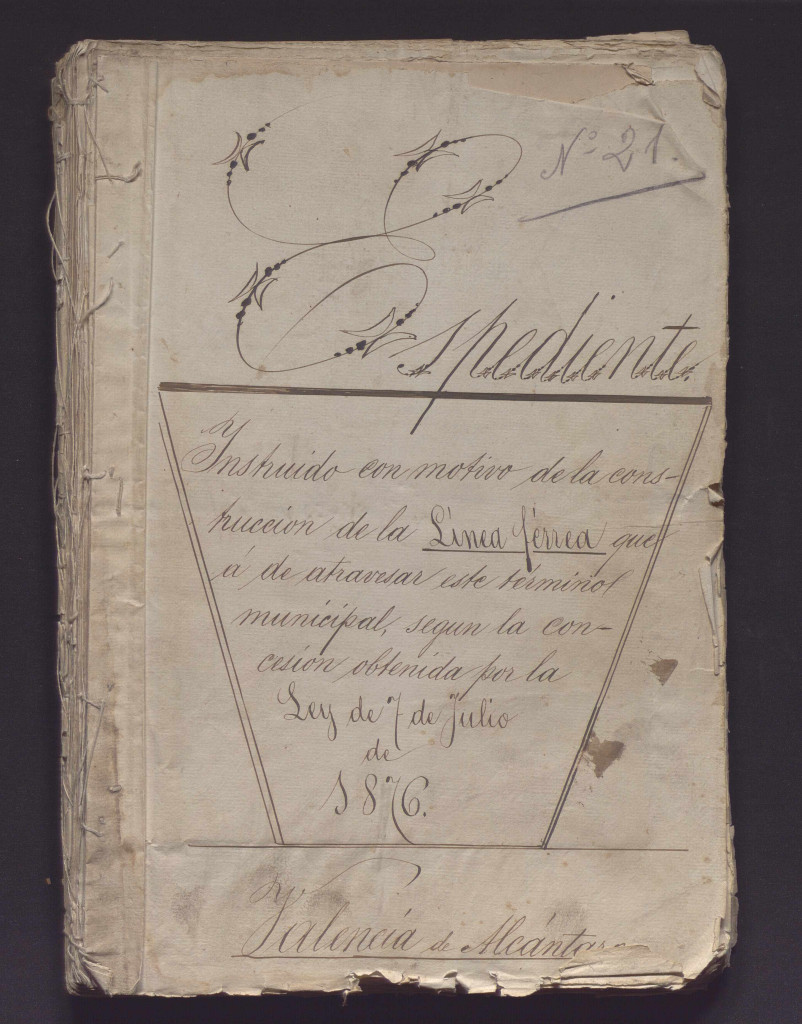 Nº 21.
Espediente
Instruido con motivo de la cons-
truccion de la Línea férrea que
á de atravesar este término
municipal, segun la con-
cesión obtenida por la
Ley de 7 de Julio
de
1876.
Valencia de Alcántara